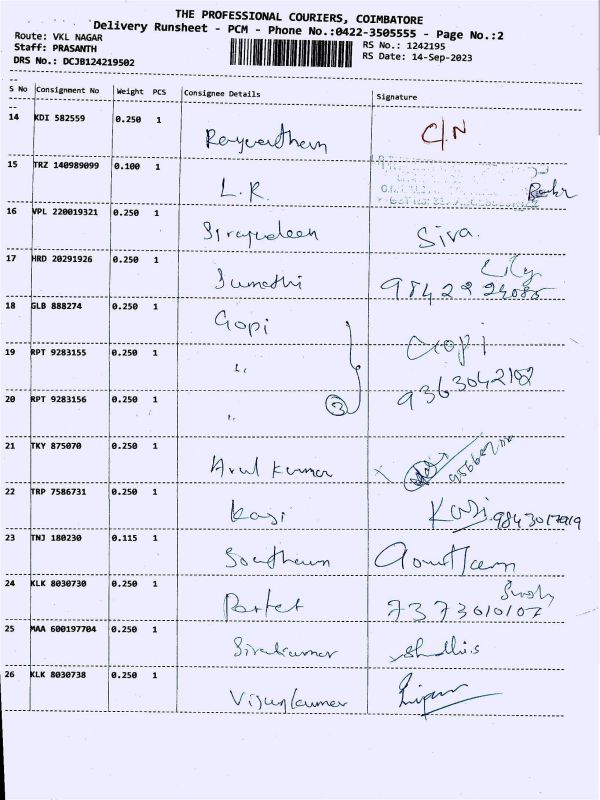 THE PROFESSIONAL COURIERS, COIMBATORE
Delivery Runsheet - PCM - Phone No.:0422-3505555 - Page No.:2
Route: VKL NAGAR
RS No.: 1242195
Staff: PRASANTH
RS Date: 14-Sep-2023
DRS No.: DCJB124219502
S No Consignment No Weight PCS Consignee Details Signature
14 KDI 582559 0.250 1 C/N
15 TRZ 140989099 0.100 1 L.R.
16 VPL 220019321 0.250 1 Sirajudeen Siva.
17 HRD 20291926 0.250 1 Sumathi
18 GLB 888274 0.250 1 Gopi Gopi
19 RPT 9283155 0.250 1 "
20 RPT 9283156 0.250 1 " 3
21 TKY 875070 0.250 1 Arul kumar
22 TRP 7586731 0.250 1 Kasi Kasi
23 TNJ 180230 0.115 1
24 KLK 8030730 0.250 1 7373010107
25 MAA 600197704 0.250 1 Sivakumar
26 KLK 8030738 0.250 1 Vijaykumar